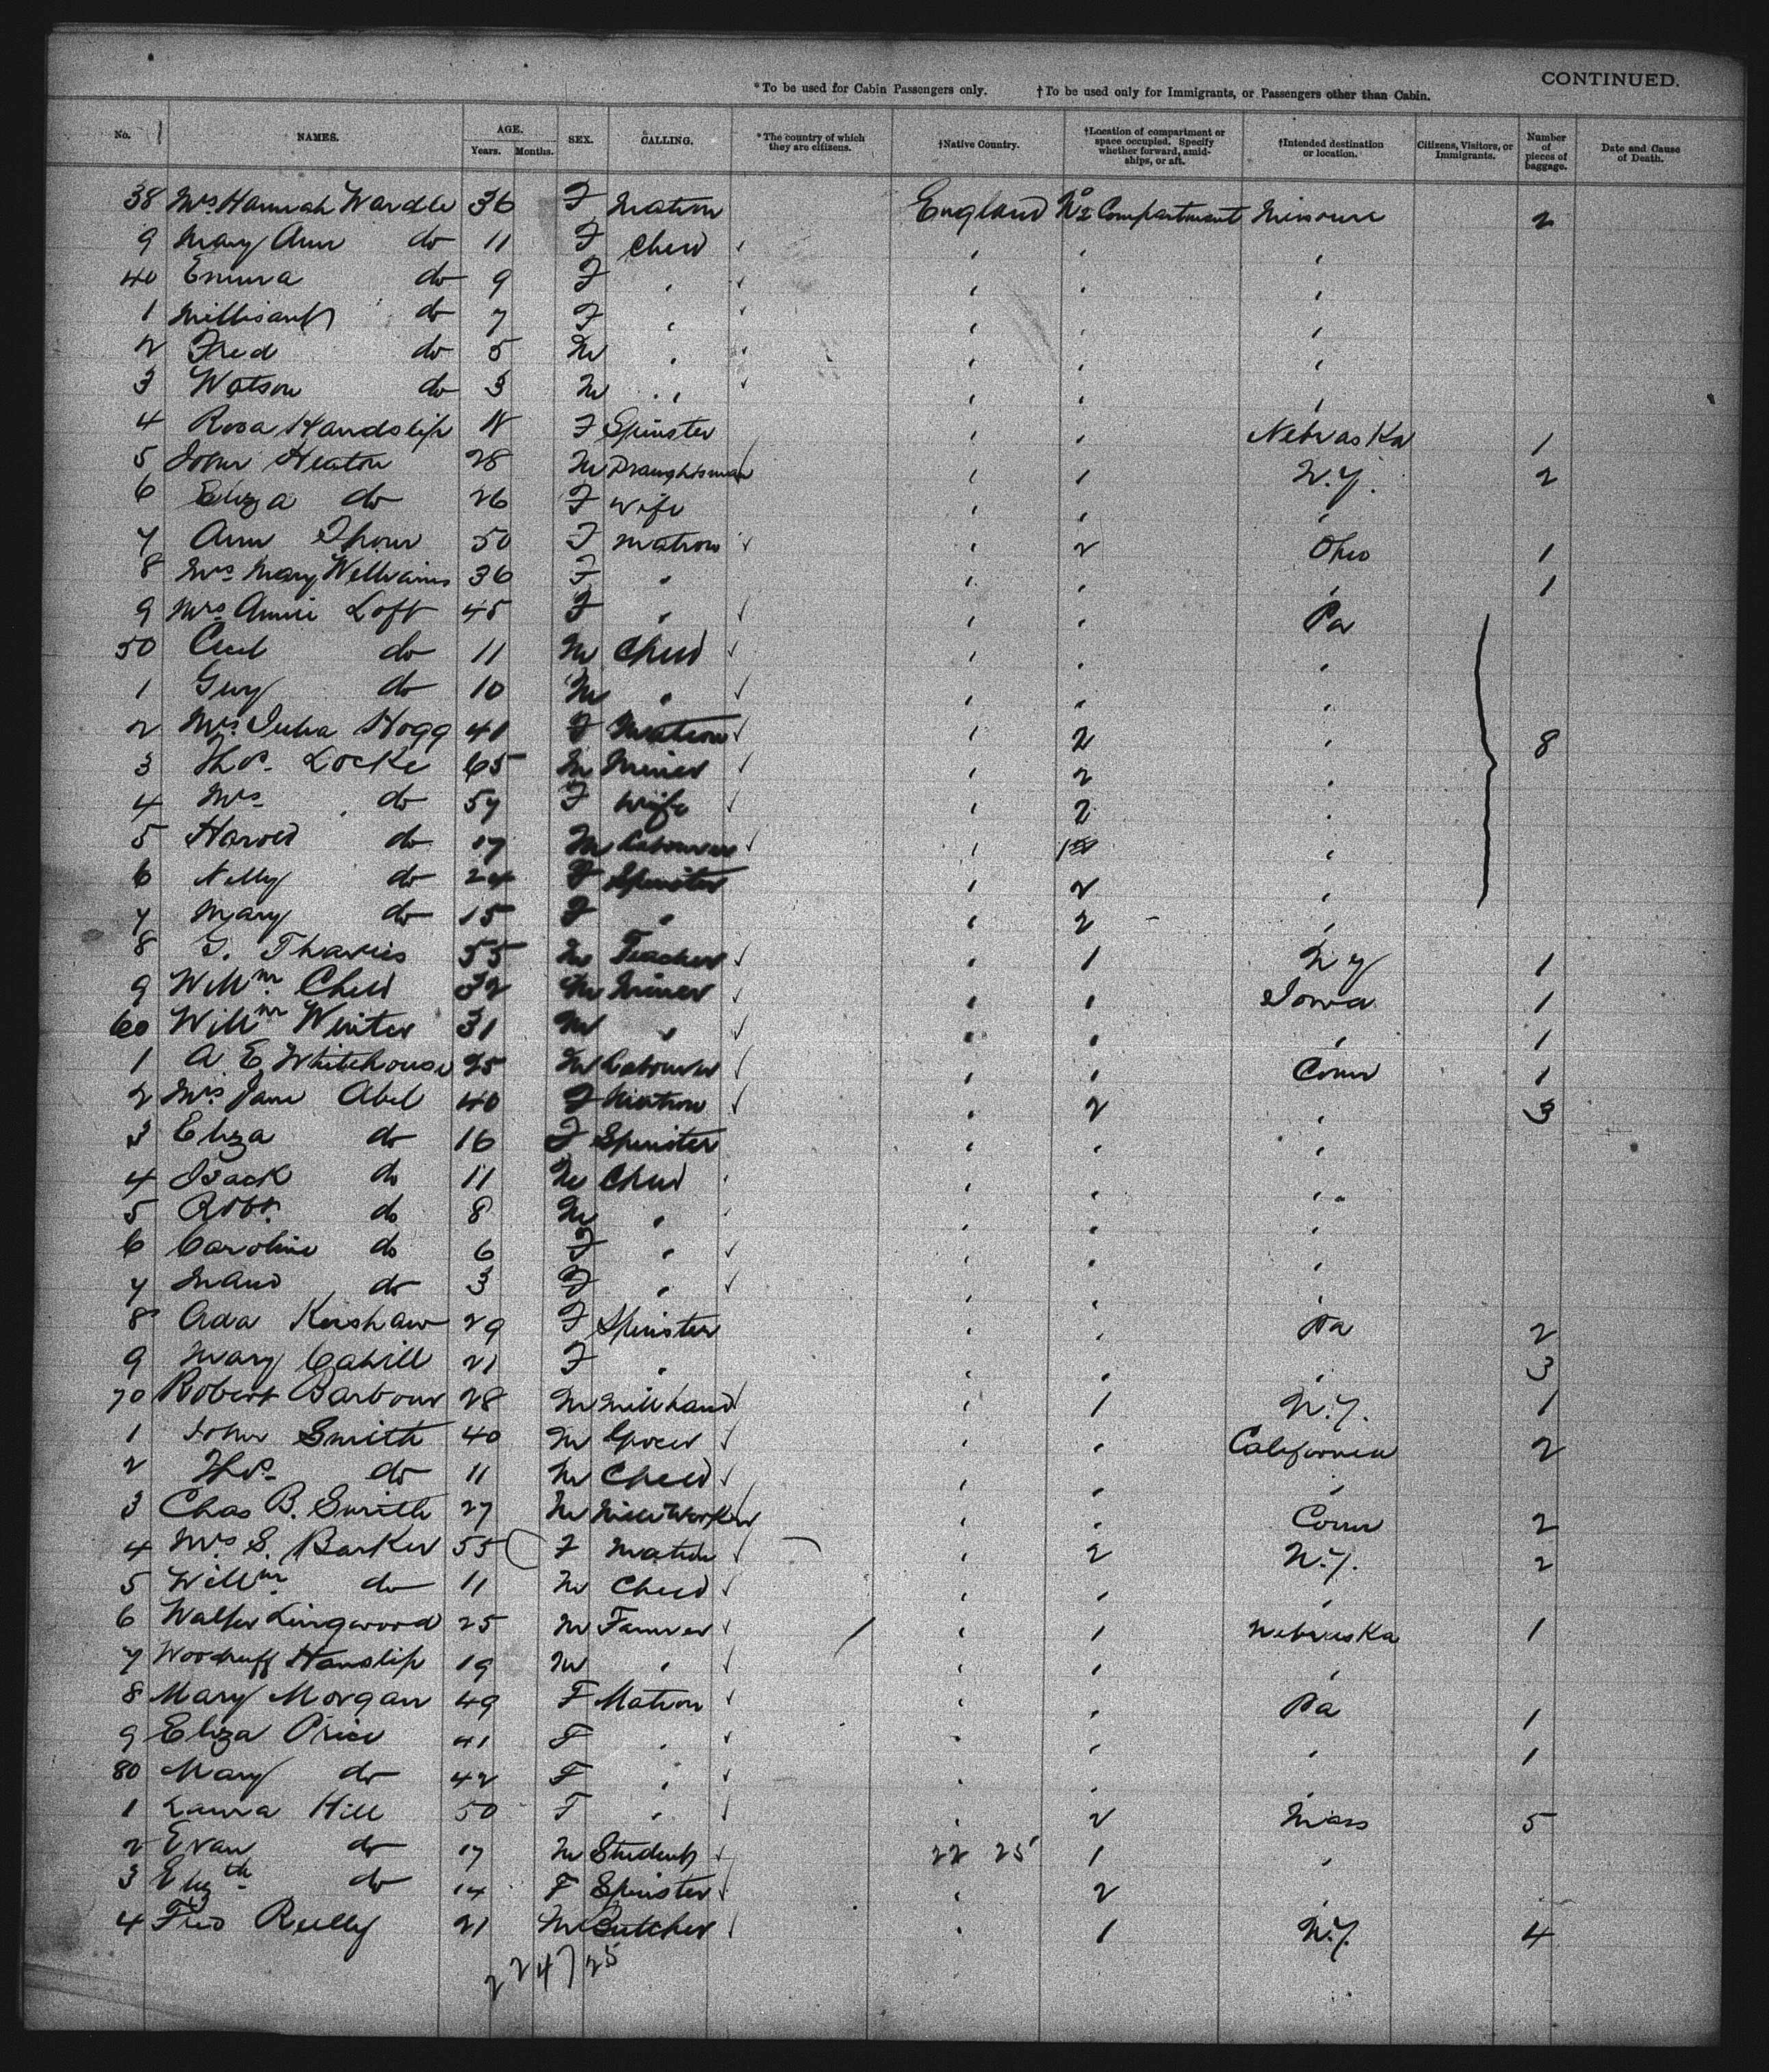 CONTINUED.
*To be used for Cabin Passengers only. †To be used only for Immigrants, or Passengers other than Cabin.
No. NAMES. AGE. Years. Months. SEX. CALLING. *The country of which they are citizens. †Native Country. †Location of compartment or space occupied. Specify whether forward, amidships, or aft. †Intended destination or location. Citizens, Visitors, or Immigrants. Number of pieces of baggage. Date and Cause of Death.
38 Mrs Hannah Wardle 36 F Matron England No 2 Compartment Missouri 2
9 Mary Ann do 11 F Child
40 Emma do 9 F
1 do 7 F
2 Fred do 5 M
3 Watson do 3 M
4 Rosa Handslip 18 F Spinster Nebraska 1
5 John Heaton 28 M Draughtsman 1 N.Y. 2
6 Eliza do 26 F Wife
7 Ann 50 F Matron 2 Ohio 1
8 Mrs Mary Williams 36 F 1
9 Mrs Annie Loft 45 F Pa
50 Cecil do 11 M Child
1 Guy do 10 M
2 Mrs Julia Hogg 41 F Matron 2 8
3 Thos Locke 65 M Miner 2
4 Mrs do 57 F Wife 2
5 Harold do 17 M Labourer
6 Nelly do 24 F Spinster 2
7 Mary do 15 F 2
8 55 M Teacher 1 N Y 1
9 Willm Child 32 M Miner Iowa 1
60 Willm Winter 31 M 1
1 A. E. Whitehouse 25 M Labourer Conn 1
2 Mrs Jane Abel 40 F Matron 2 3
3 Eliza do 16 F Spinster
4 Isack do 11 M Child
5 Robt. do 8 M
6 Caroline do 6 F
7 Maud do 3 F
8 Ada Kershaw 29 F Spinster Pa 2
9 Mary Cahill 21 F 3
70 Robert Barbour 28 M Millhand 1 N.Y. 1
1 John Smith 40 M Grocer California 2
2 Thos do 11 M Child
3 Chas B. Smith 27 M Mill Worker Conn 2
4 Mrs S. Barker 55 F Matron 2 N.Y. 2
5 Willm do 11 M Child
6 Walter Lingwood 25 M Farmer 1 Nebraska 1
7 Woodruff Hanslip 19 M
8 Mary Morgan 49 F Matron Pa 1
9 Eliza Price 41 F 1
80 Mary do 42 F
1 Laura Hill 50 F 2 Mass 5
2 Evan do 17 M Student 22 25 1
3 Elizth do 14 F Spinster 2
4 Reilly 21 M Butcher 1 N.Y. 4